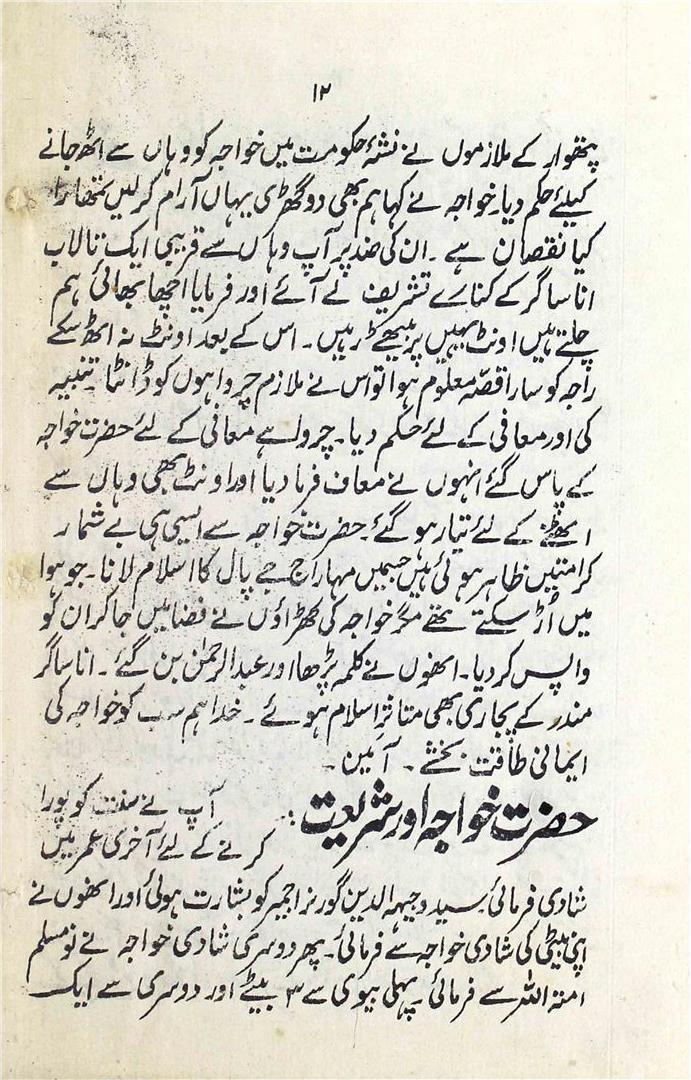 ۱۲
پتھوار کے ملازموں نے نشۂ حکومت میں خواجہ کو وہاں سے اٹھ جانے
کیلئے حکم دیا۔ خواجہ نے کہا ہم بھی دو گھڑی یہاں آرام کر لیں تمھارا
کیا نقصان ہے ۔ ان کی ضد پر آپ وہاں سے قریبی ایک تالاب
انا ساگر کے کنارے تشریف لے آئے اور فرمایا اچھا بھائی ہم
چلتے ہیں اونٹ یہیں پر بیٹھے رہیں ۔ اس کے بعد اونٹ نہ اٹھ سکے
راجہ کو سارا قصّہ معلوم ہوا تو اس نے ملازم چرواہوں کو ڈانٹا ۔ تنبیہ
کی اور معافی کے لئے حکم دیا۔ چرواہے معافی کے لئے حضرت خواجہ
کے پاس گئے انہوں نے معاف فرما دیا اور اونٹ بھی وہاں سے
اٹھنے کے لئے تیار ہو گئے ۔ حضرت خواجہ سے ایسی ہی بے شمار
کرامتیں ظاہر ہوئی ہیں جسمیں مہاراج جے پال کا اسلام لانا ۔ جو ہوا
میں اُڑ سکتے تھے مگر خواجہ کی کھڑاؤں نے فضا میں جا کر ان کو
واپس کر دیا۔ انھوں نے کلمہ پڑھا اور عبدالرحمٰن بن گئے ۔ انا ساگر
مندر کے پجاری بھی متاثر اسلام ہوئے ۔ خدا ہم سب کو خواجہ کی
ایمانی طاقت بخشے ۔ آمین ۔
حضرت خواجہ اور شریعت : آپ نے سنت کو پورا
کرنے کے لئے آخری عمر میں
شادی فرمائی۔ سید وجیہہ الدین گورنر اجمیر کو بشارت ہوئی اور انھوں نے
اپنی بیٹی کی شادی خواجہ سے فرمائی۔ پھر دوسری شادی خواجہ نے نو مسلم
امتہ اللہ سے فرمائی ۔ پہلی بیوی سے ۳ بیٹے اور دوسری سے ایک